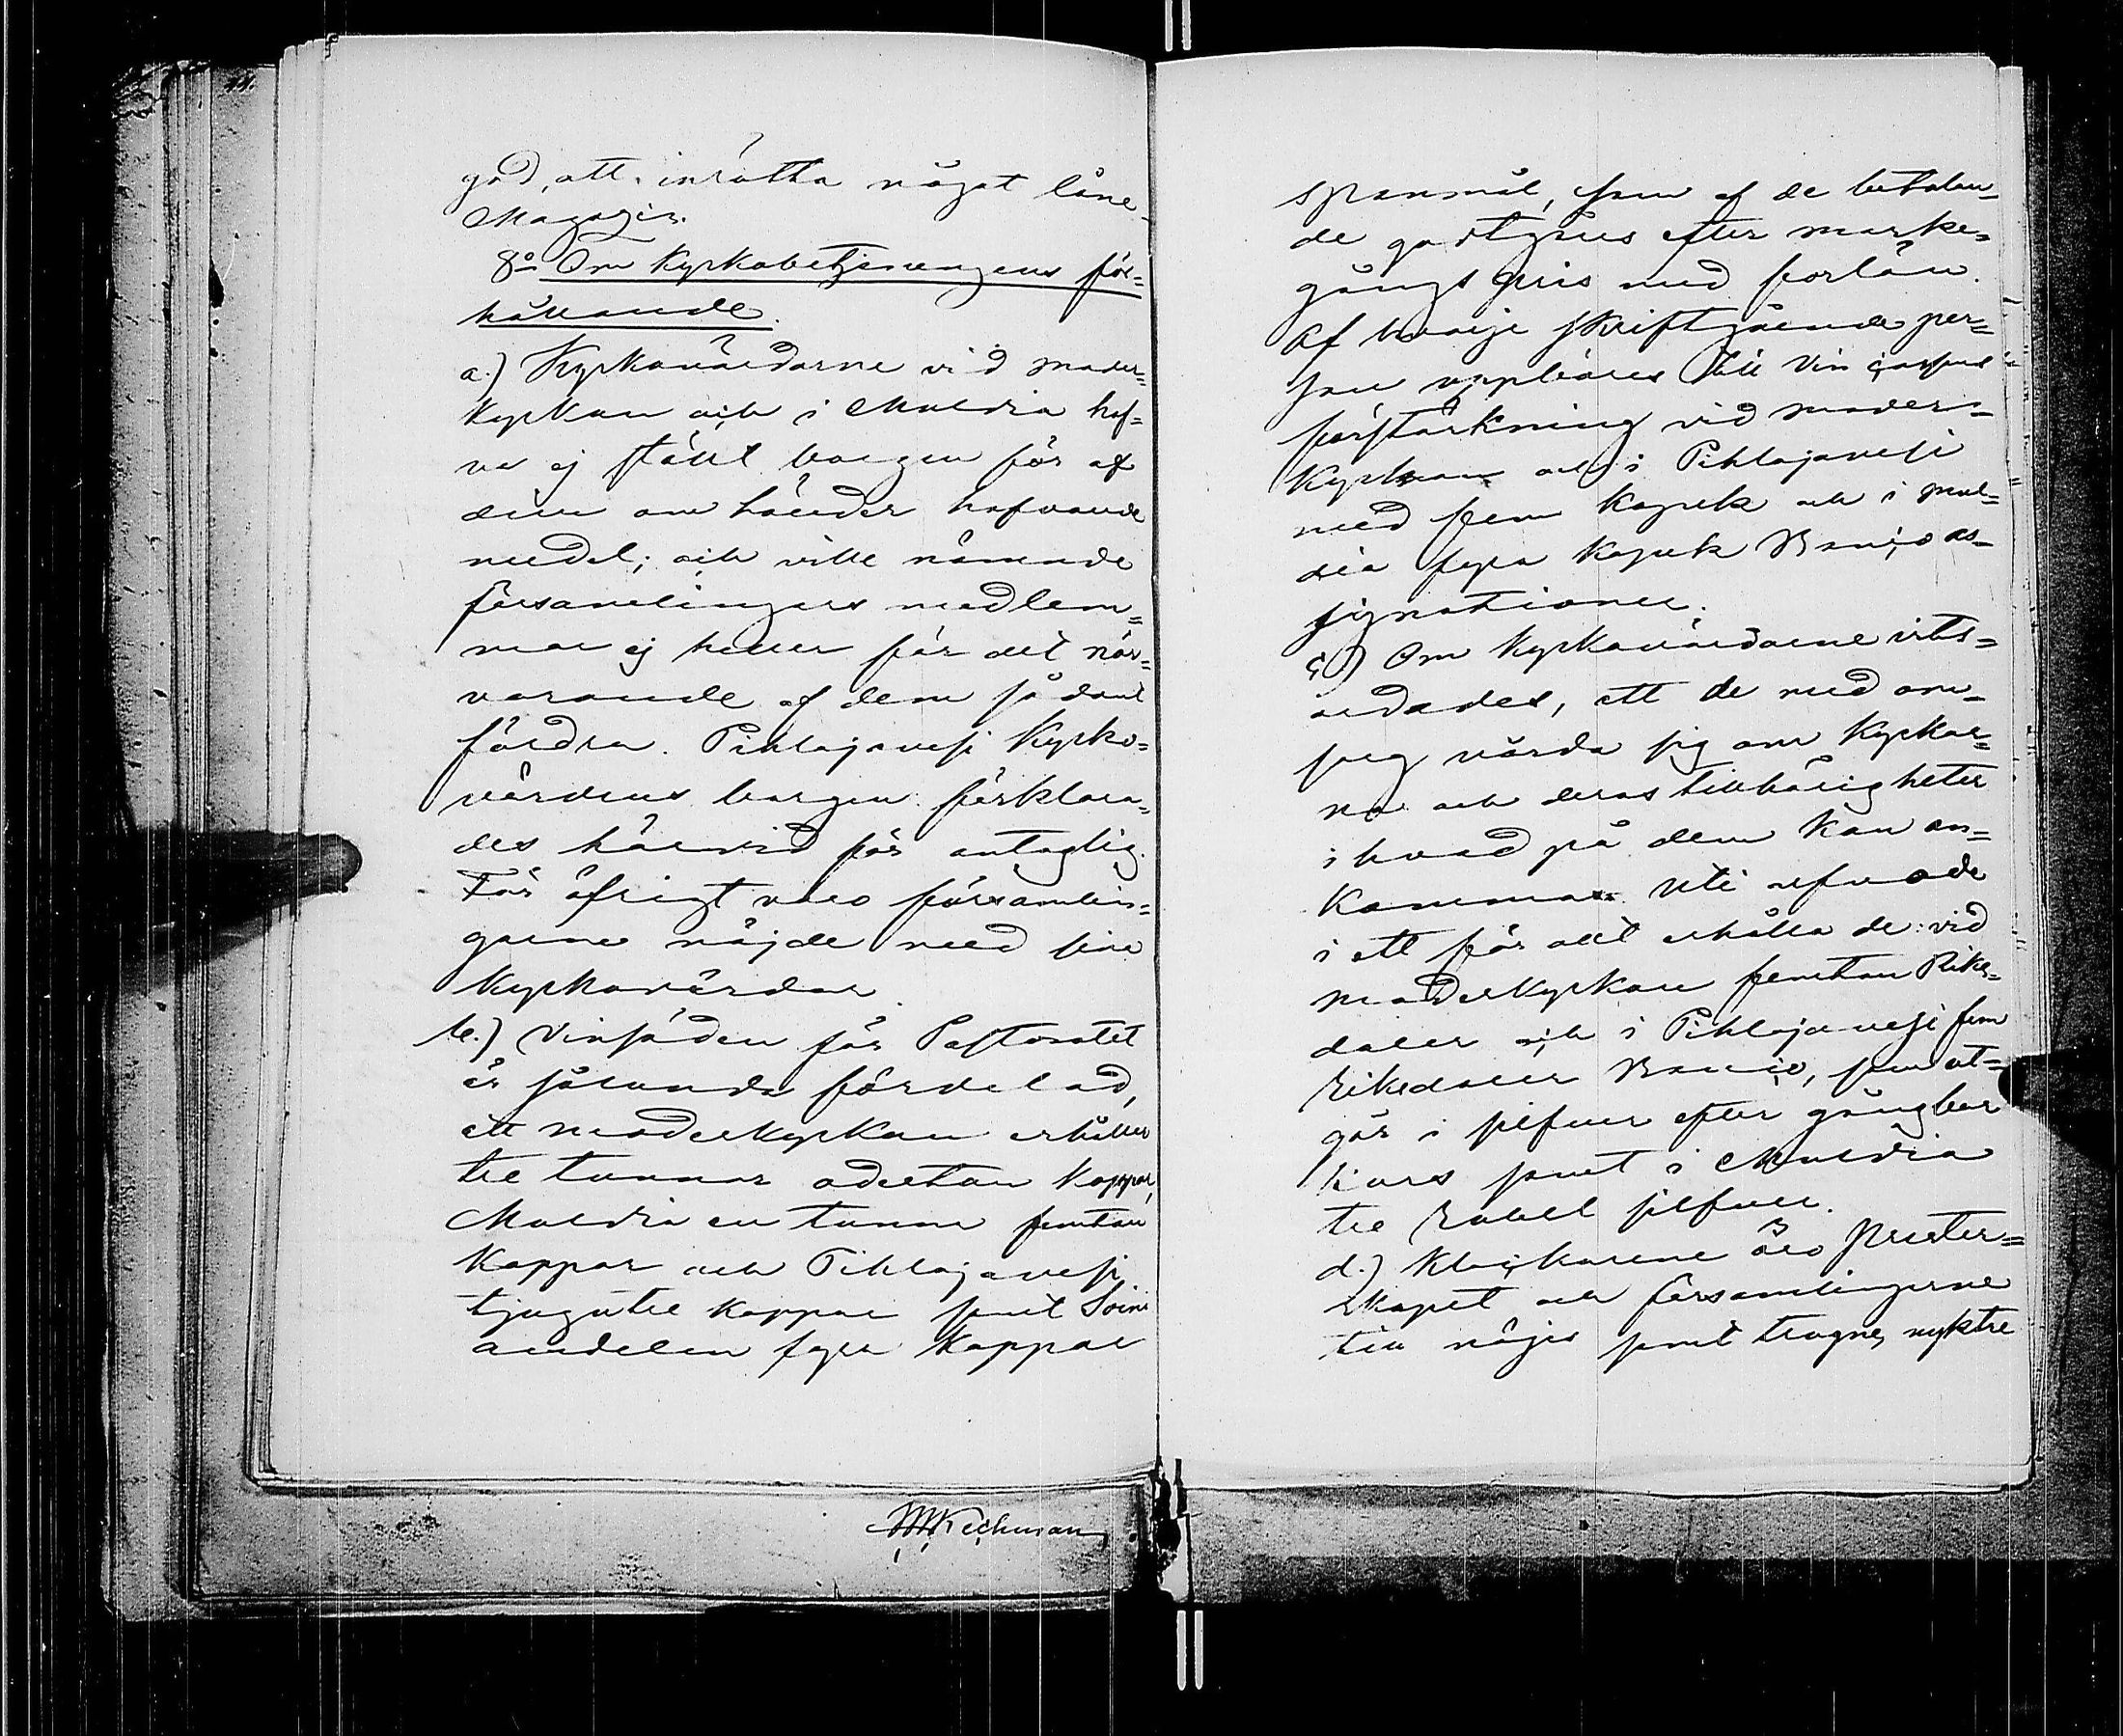 god, att inrätta något låne-
Magazin.
8:o Om Kyrkobetjeningens för-
hållande.
a.) Kyrkovärdarne vid moder-
kyrkan och i Multia haf-
va ej ställt borgen för af
dem om händer hafvande
medel; och ville nämnde
församlingars medlem-
mar ej heller för det när-
varande af dem sådant
fördra. Pihlajavesi Kyrko-
värdens borgen förklara-
des härvid för antaglig.
För öfrigt voro församlin-
garne nöjde med sine
Kyrkovärdar.
b.) Vinsäden för Pastoratet
är sålunda fördelad,
att moderkyrkan erhåller
tre tunnor aderton kappar,
Multia en tunna femton
kappar och Pihlajavesi
tjugutre kappar samt Soini
andelen fyra kappar
M Wechman
spanmål, som af de betalan-
de godtgöres efter marke-
gångs pris med forlön.
Af hvarje skriftgående per-
son uppbäres till Vin cassans
förstärkning vid moder-
kyrkan och i Pihlajavesi
med fem kopek och i Mul-
tia fyra kopek Banco as-
signationer.
c.) Om Kyrkovärdarne vits-
ordades, att de med om-
sorg vårda sig om Kyrkor-
na och deras tillhörigheter
i hvad på dem kan an-
komma. Uti arfvode
i ett för allt erhålla de: vid
moderkyrkan femton Riks-
daler och i Pihlajavesi fem
Riksdaler Banco, som ut-
går i silfver efter gångbar
kurs samt i Multia
tre Rubel silfver.
d.) Klockarene äro Prester-
skapet och församlingarne
till nöjes samt trogne, nyktre